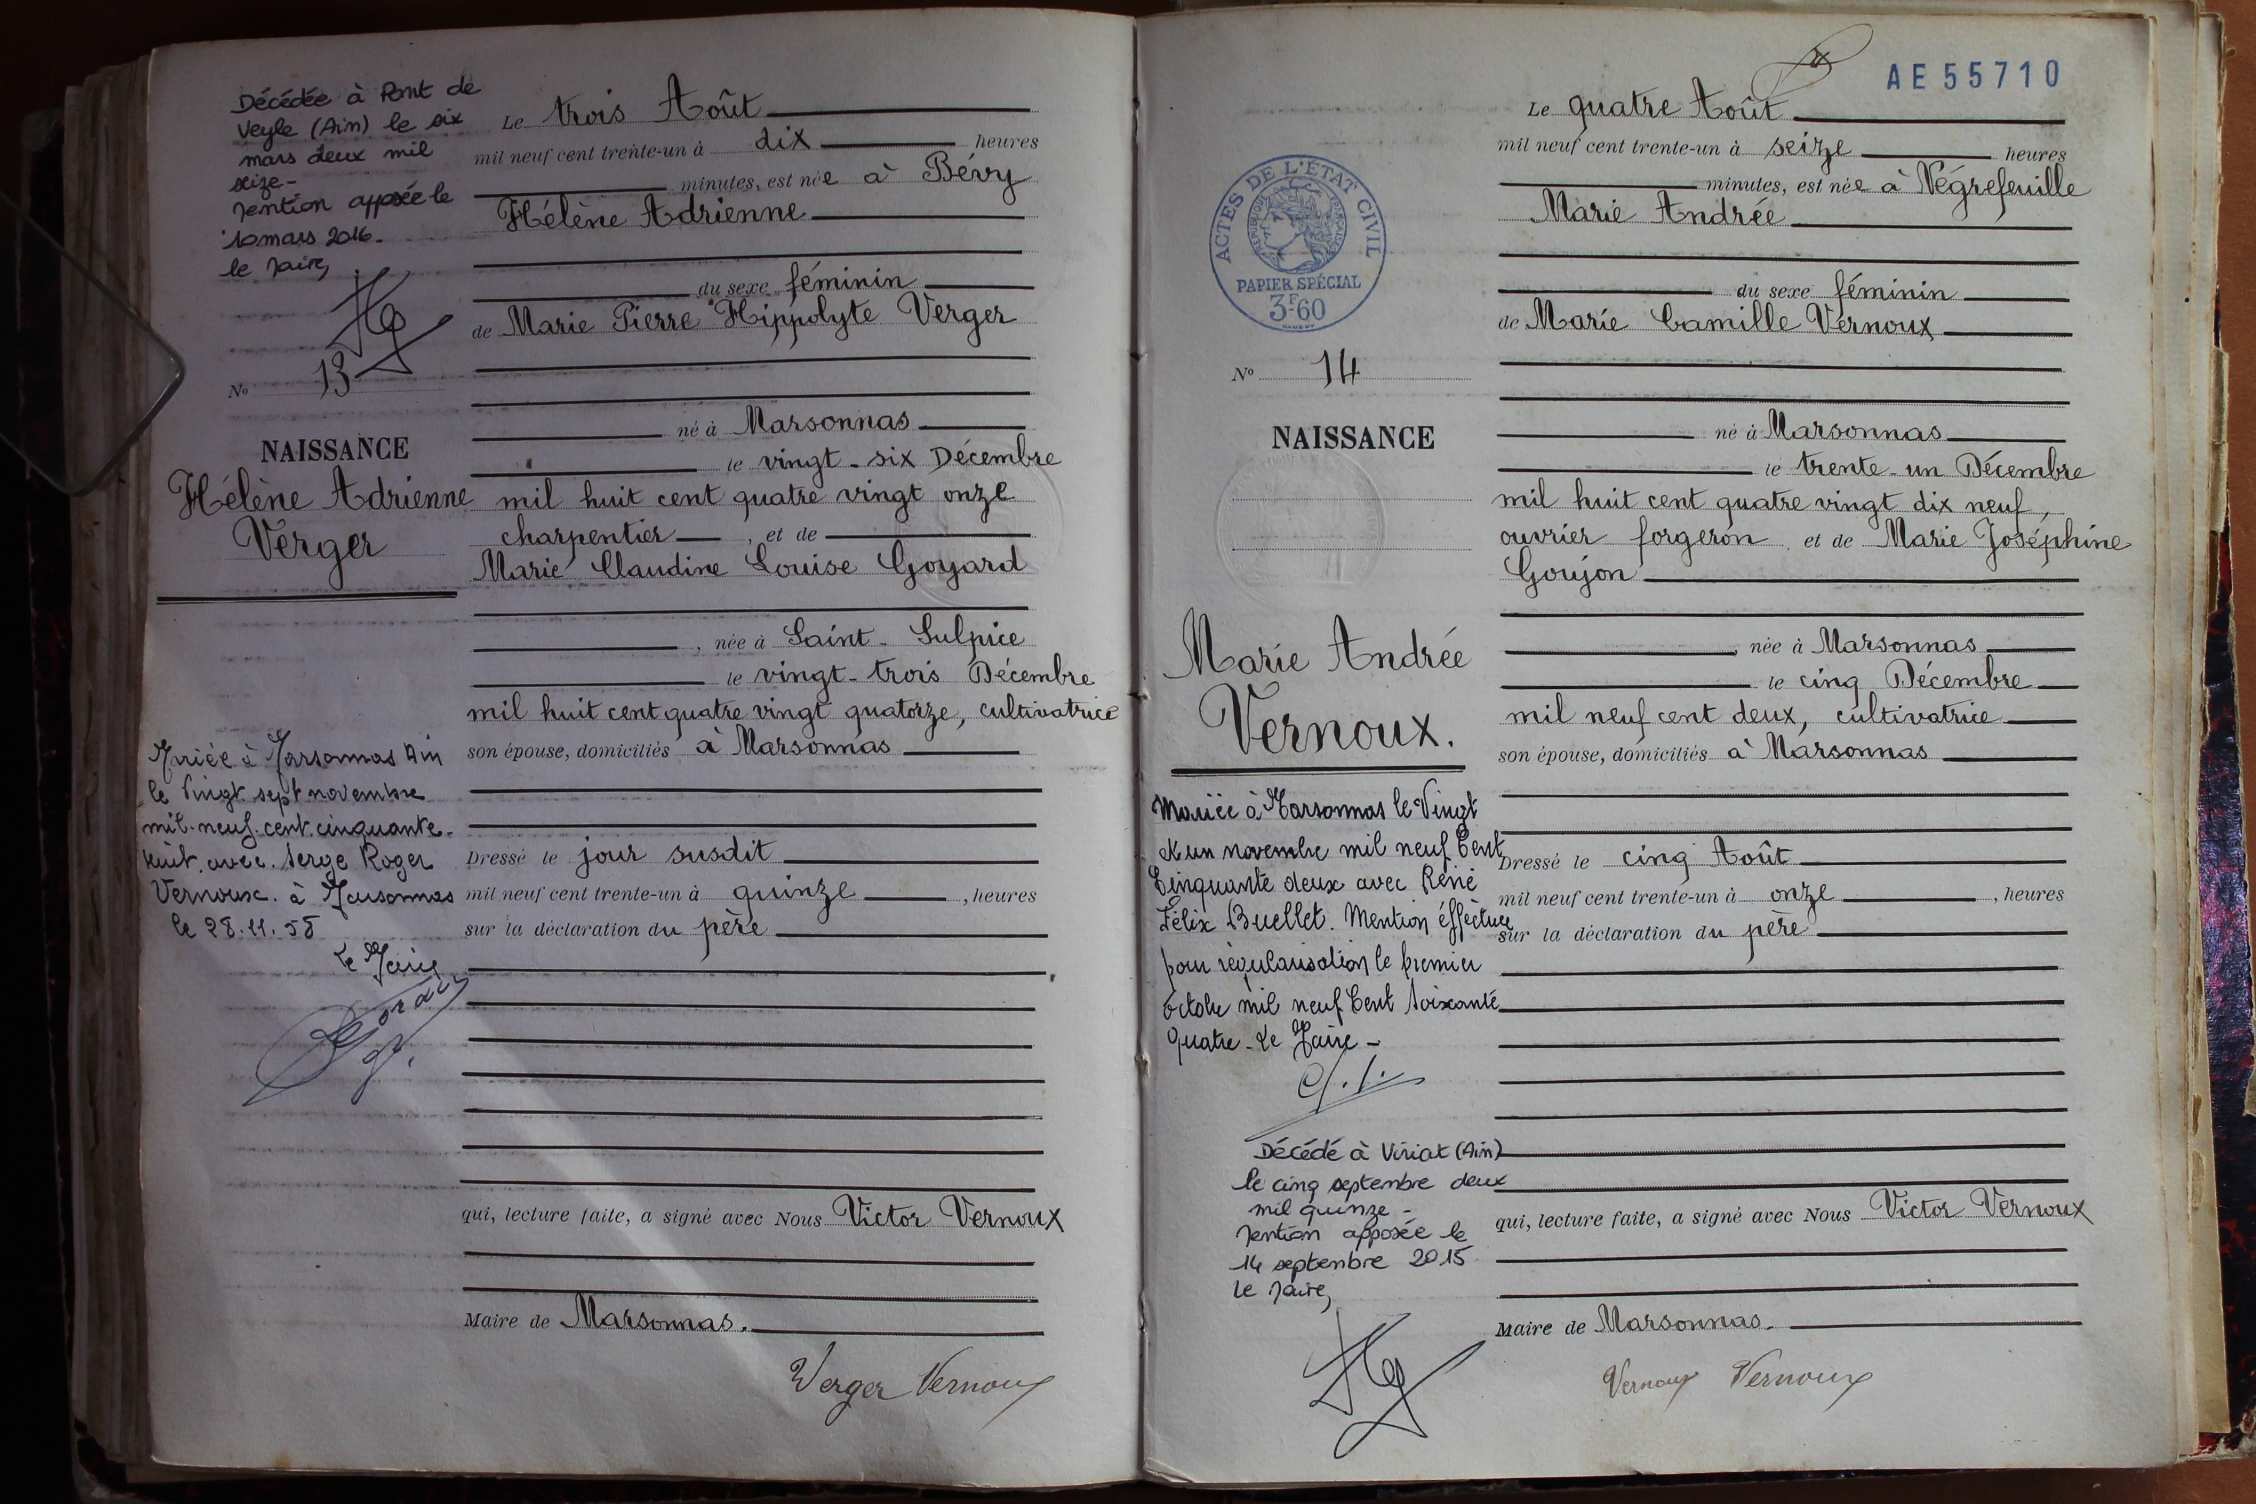 Décédée à Pont de
Veyle (Ain) le six
mars deux mil
seize -
Mention apposée le
10 mars 2016.
le Maire,
No 13
NAISSANCE
Hélène Adrienne
Verger
Mariée à Marsonnas Ain
le Vingt sept novembre
mil. neuf. cent. cinquante.
huit. avec. Serge Roger
Vernoux. à Marsonnas
le 28.11.58
Le Maire
Le trois Août
mil neuf cent trente-un à dix heures
minutes, est née à Bévy
Hélène Adrienne
du sexe féminin
de Marie Pierre Hippolyte Verger
né à Marsonnas
le vingt-six Décembre
mil huit cent quatre vingt onze
charpentier, et de
Marie Claudine Louise Goyard
, née à Saint-Sulpice
le vingt-trois Décembre
mil huit cent quatre vingt quatorze, cultivatrice
son épouse, domiciliés à Marsonnas
Dressé le jour susdit
mil neuf cent trente-un à quinze, heures
sur la déclaration du père
qui, lecture faite, a signé avec Nous Victor Vernoux
Maire de Marsonnas.
Verger Vernoux
AE 55710
ACTES DE L'ÉTAT CIVIL
RÉPUBLIQUE FRANÇAISE
PAPIER SPÉCIAL
3F60
No 14
NAISSANCE
Marie Andrée
Vernoux.
Mariée à Marsonnas le Vingt
et un novembre mil neuf Cent
Cinquante deux avec René
Félix Buellet. Mention éffectuée
pour régularisation le premier
octobre mil neuf Cent soixante
quatre - Le Maire -
Décédé à Viriat (Ain)
le cinq septembre deux
mil quinze -
Mention apposée le
14 septembre 2015
le Maire,
Le quatre Août
mil neuf cent trente-un à seize heures
minutes, est née à Négrefeuille
Marie Andrée
du sexe féminin
de Marie Camille Vernoux
né à Marsonnas
le trente-un Décembre
mil huit cent quatre vingt dix neuf,
ouvrier forgeron, et de Marie Joséphine
Goujon
, née à Marsonnas
le cinq Décembre
mil neuf cent deux, cultivatrice
son épouse, domiciliés à Marsonnas
Dressé le cinq Août
mil neuf cent trente-un à onze, heures
sur la déclaration du père
qui, lecture faite, a signé avec Nous Victor Vernoux
Maire de Marsonnas.
Vernoux Vernoux